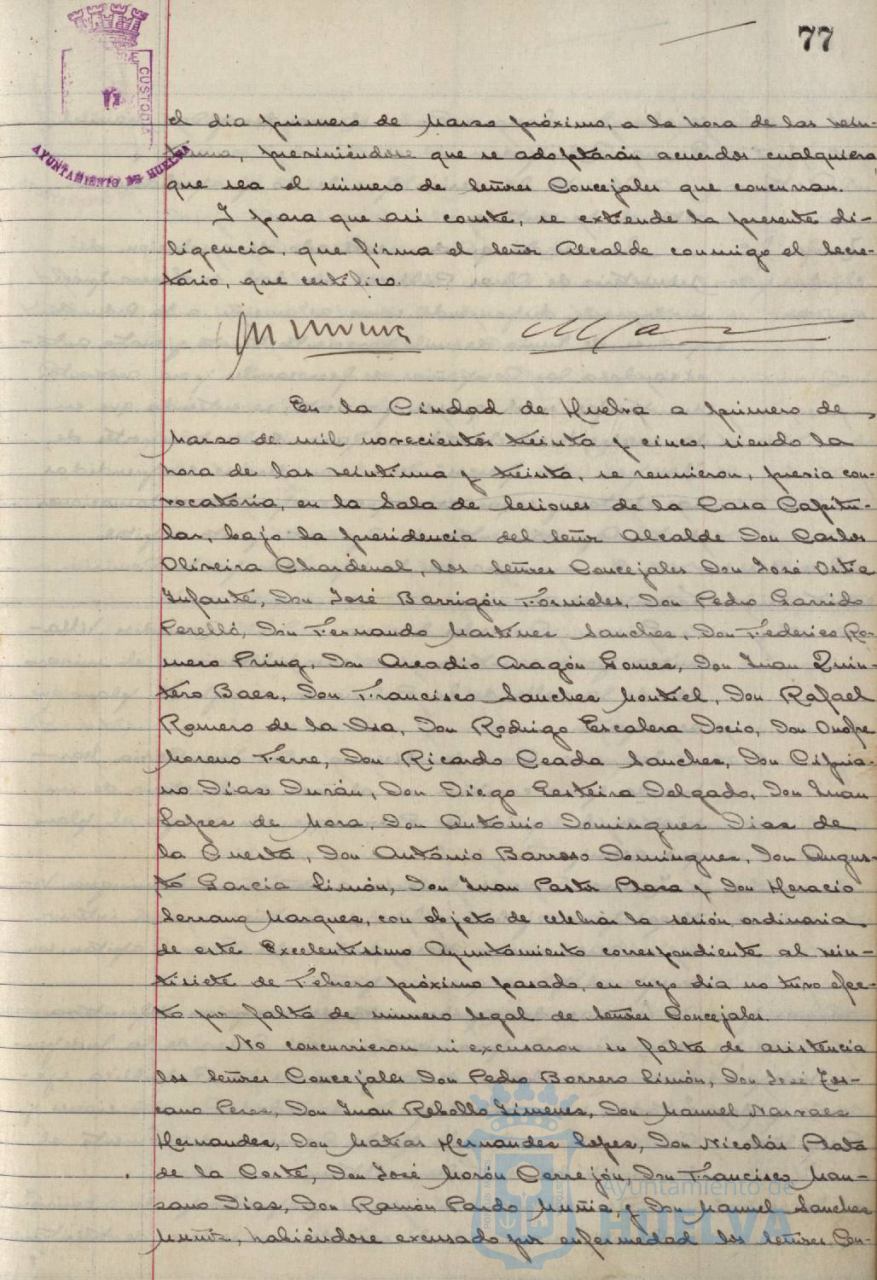 77
CUSTODIA
AYUNTAMIENTO DE HUELVA
el día primero de Marzo próximo, a la hora de las vein-
tiuna, previniéndose que se adoptarán acuerdos cualquiera
que sea el número de Señores Concejales que concurran.
I para que así conste, se extiende la presente di-
ligencia, que firma el Señor Alcalde conmigo el Secre-
tario, que certifico.
En la Ciudad de Huelva a primero de
Marzo de mil novecientos treinta y cinco, siendo la
hora de las veintiuna y treinta, se reunieron, previa con-
vocatoria, en la Sala de Sesiones de la Casa Capitu-
lar, bajo la presidencia del Señor Alcalde Don Carlos
Oliveira Chardenal, los Señores Concejales Don José Ostia
Infante, Don José Barrigón Fornieles, Don Pedro Garrido
Perelló, Don Fernando Martínez Sanchez, Don Federico Ro-
mero Pring, Don Arcadio Aragón Gomez, Don Juan Quin-
tero Baez, Don Francisco Sanchez Montiel, Don Rafael
Romero de la Osa, Don Rodrigo Escalera Docio, Don Onofre
Moreno Ferre, Don Ricardo Ceada Sanchez, Don Cipria-
no Diaz Durán, Don Diego Lesteira Delgado, Don Juan
Lopez de Mora, Don António Dominguez Diaz de
la Cuesta, Don António Barroso Dominguez, Don Augus-
to García Limón, Don Juan Pastor Plaza y Don Horacio
Serrano Marquez, con objeto de celebrar la sesión ordinaria
de este Excelentísimo Ayuntamiento correspondiente al vein-
tisiete de Febrero próximo pasado, en cuyo día no tuvo efec-
to por falta de número legal de Señores Concejales.
No concurrieron ni excusaron su falta de asistencia
los Señores Concejales Don Pedro Borrero Limón, Don José
Perez, Don Juan Rebollo Jimenez, Don Manuel Narvaez
Hernandez, Don Matías Hernandez Lopez, Don Nicolás Plata
de la Corte, Don José Morón Correjón, Don Francisco Man-
zano Diaz, Don Ramón Pardo Muñiz, y Don Manuel Sanchez
Muñoz, habiéndose excusado por enfermedad los Señores Con-
Ayuntamiento de
HUELVA